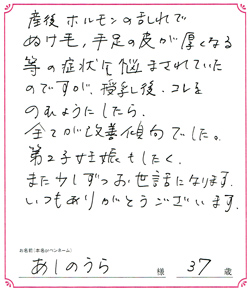 産後ホルモンのみだれで
ぬけ毛，手足の皮が厚くなる
等の症状を悩まされていた
のですが、授乳後．コレを
のむようにしたら．
全てが改善傾向でした。
第2子妊娠もしたく．
また少しずつお世話になります．
いつもありがとうございます．
お名前(本名orペンネーム)
あしのうら 様 37 歳